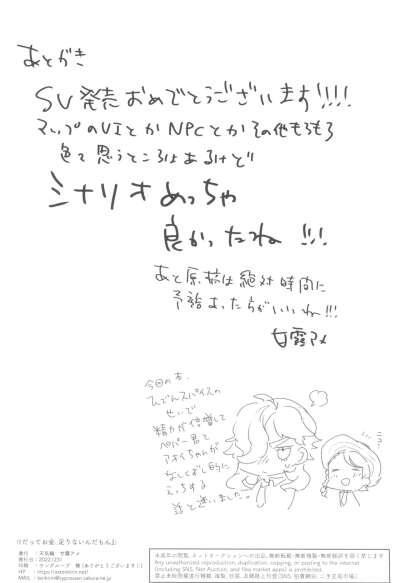 あとがき
SV発売おめでとうございます!!!!
マップのUIとかNPCとかその他もろもろ
色々思うところはあるけど
シナリオめっちゃ
良かったね!!!
あと原稿は絶対時間に
予裕もったらがいいね!!!
甘露アメ
今回の本、
ひでんスパイスの
せいで
精力が倍増して
ペパー君と
アオイちゃんが
なしくずし的に
えっちする
話を描いました。
ニコ
『だってお金、足りないんだもん』
発行日:2022.12.31
HP
MAIL
未成年の閲覧、ネットオークションへの出品、無断転載・無断複製・無断翻訳を固く禁じます
Any unauthorized reproduction, duplication, copying, or posting to the internet
(including SNS, Net Auction, and flea market apps) is prohibited.